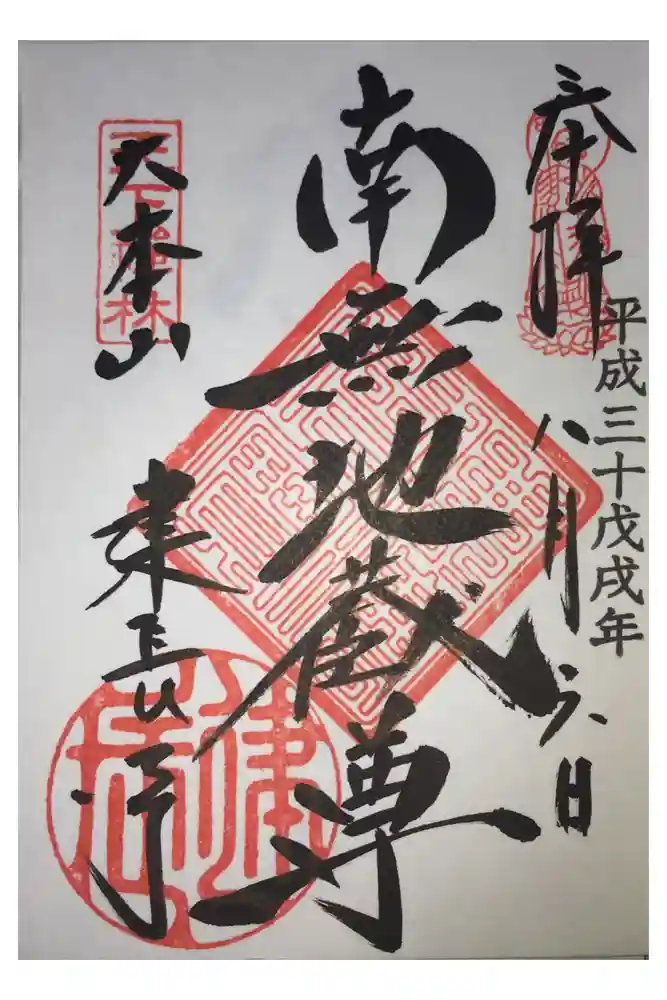 奉拝
平成三十戊戌年
八月六日
南無地蔵尊
天下禅林
大本山
建長寺